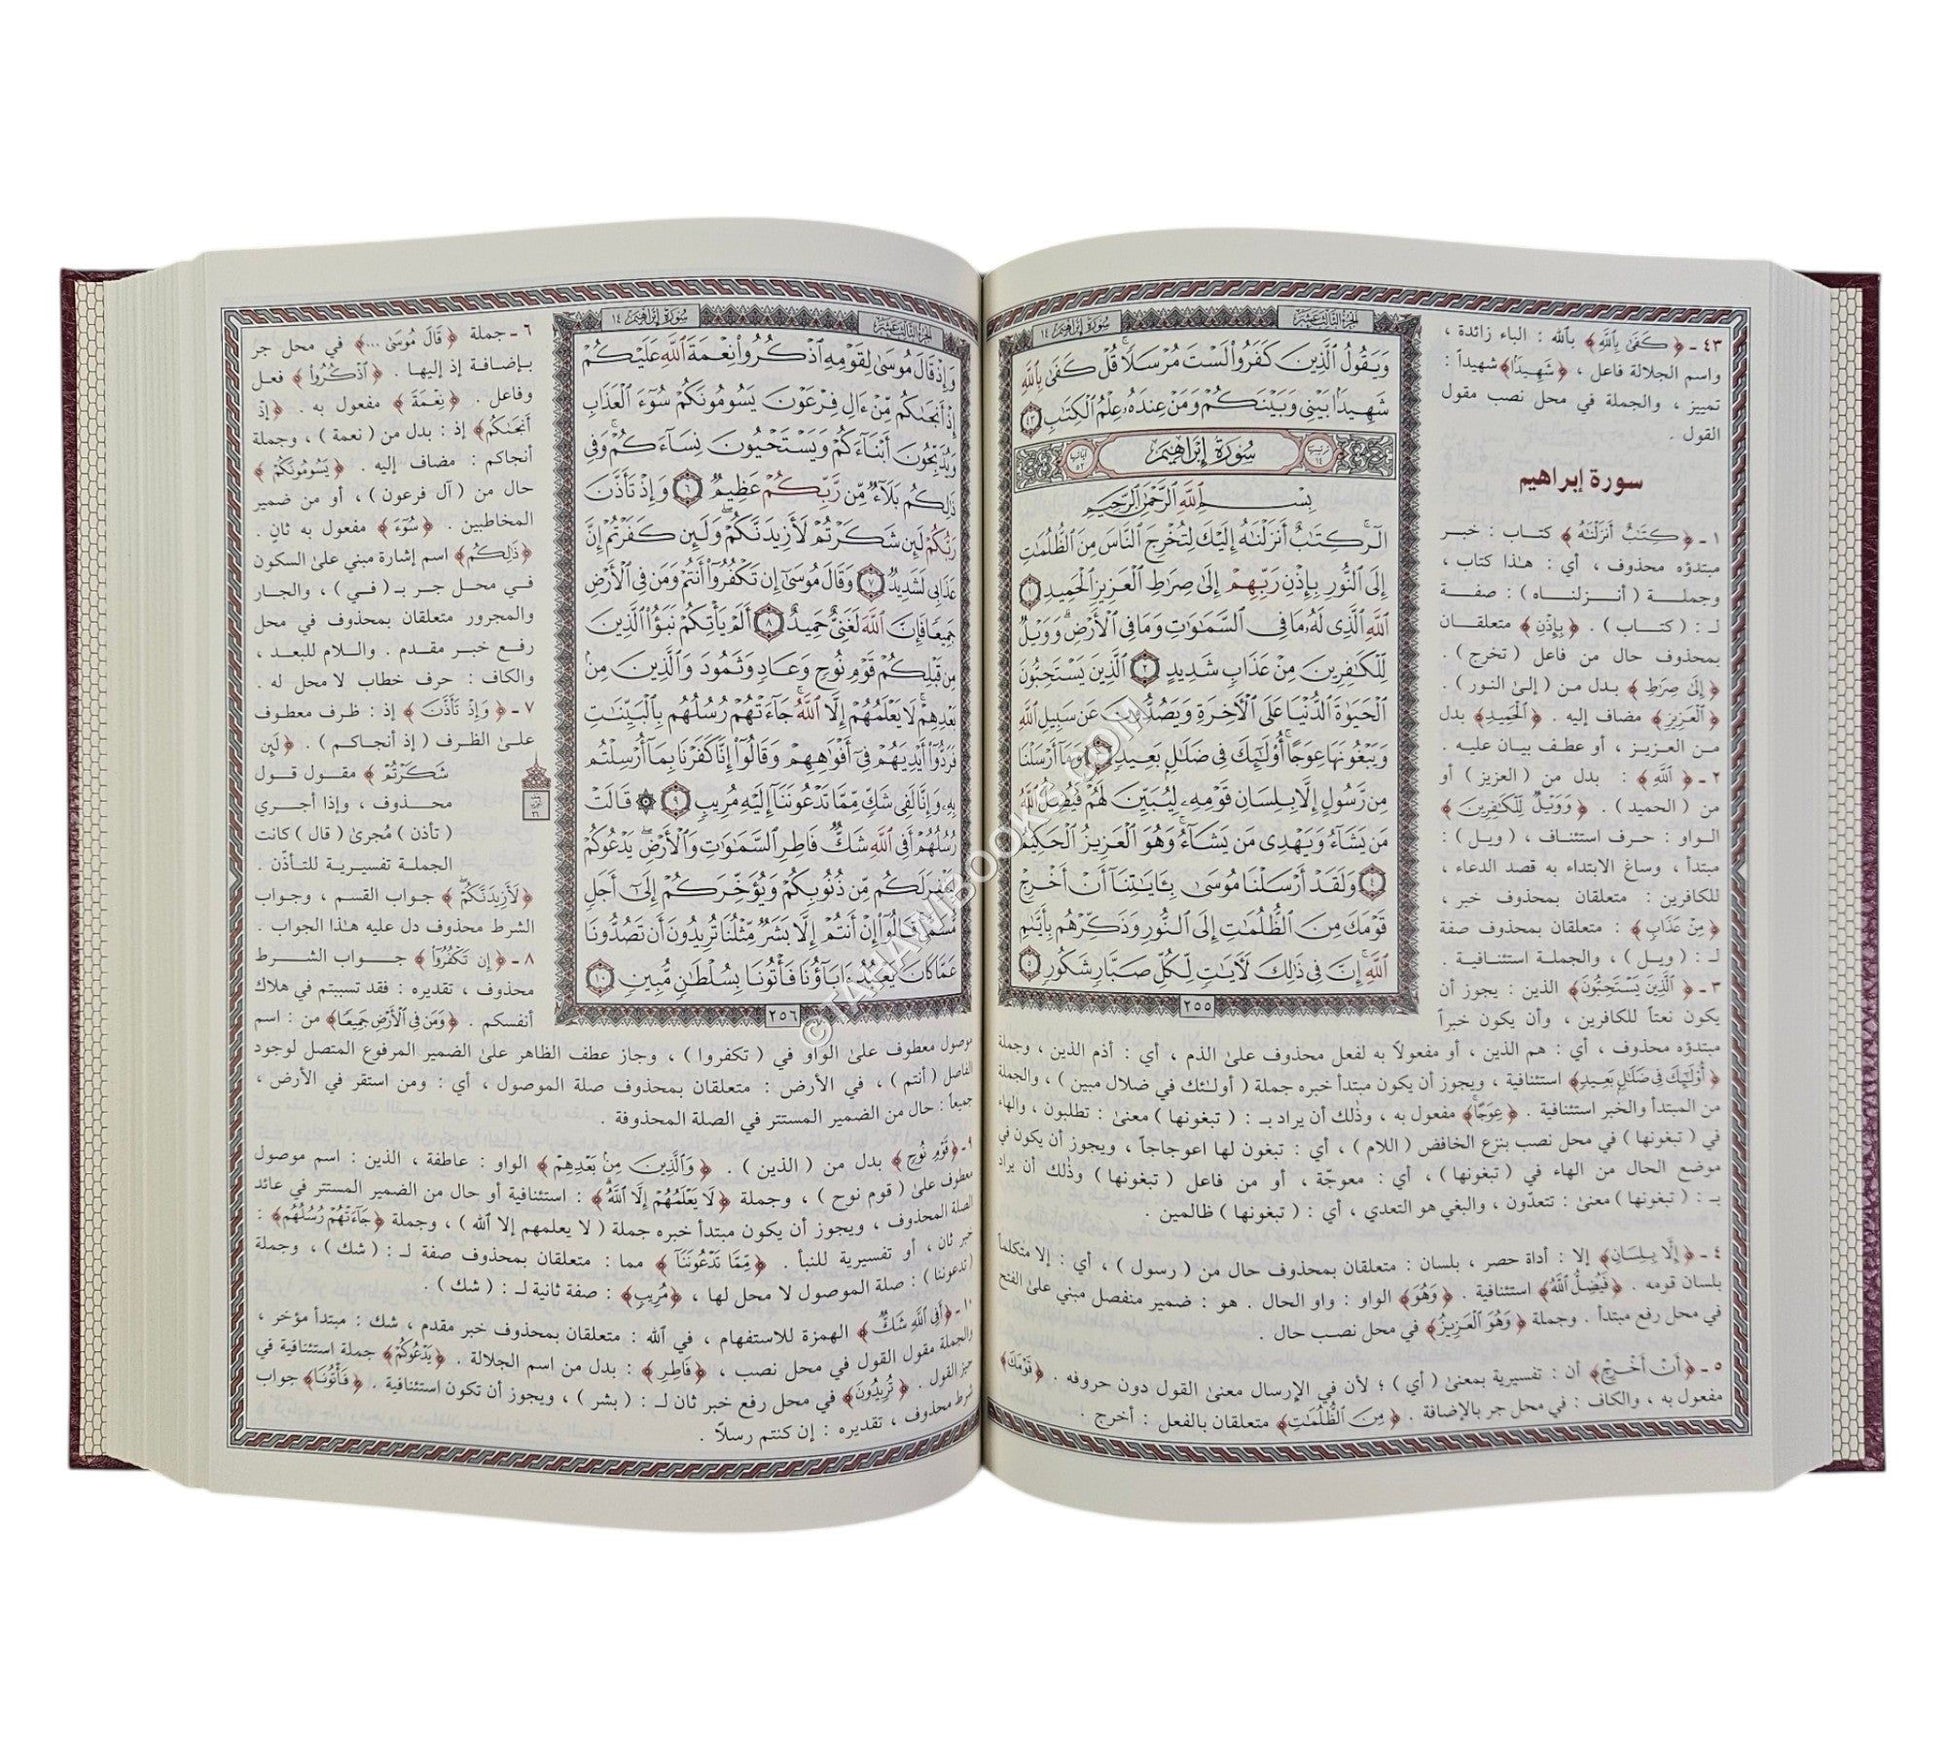 الجزء الثالث عشر
سورة إبراهيم ١٤
وَيَقُولُ ٱلَّذِينَ كَفَرُواْ لَسْتَ مُرْسَلًاۚ قُلْ كَفَىٰ بِٱللَّهِ
شَهِيدَۢا بَيْنِي وَبَيْنَكُمْ وَمَنْ عِندَهُۥ عِلْمُ ٱلْكِتَٰبِ ٤٣
ترتيبها ١٤
سُورَةُ إِبْرَاهِيمَ
آياتها ٥٢
بِسْمِ ٱللَّهِ ٱلرَّحْمَٰنِ ٱلرَّحِيمِ
الٓرۚ كِتَٰبٌ أَنزَلْنَٰهُ إِلَيْكَ لِتُخْرِجَ ٱلنَّاسَ مِنَ ٱلظُّلُمَٰتِ
إِلَى ٱلنُّورِ بِإِذْنِ رَبِّهِمْ إِلَىٰ صِرَٰطِ ٱلْعَزِيزِ ٱلْحَمِيدِ ١
ٱللَّهِ ٱلَّذِي لَهُۥ مَا فِي ٱلسَّمَٰوَٰتِ وَمَا فِي ٱلْأَرْضِۗ وَوَيْلٌ
لِّلْكَٰفِرِينَ مِنْ عَذَابٍ شَدِيدٍ ٢ ٱلَّذِينَ يَسْتَحِبُّونَ
ٱلْحَيَوٰةَ ٱلدُّنْيَا عَلَى ٱلْأٓخِرَةِ وَيَصُدُّونَ عَن سَبِيلِ ٱللَّهِ
وَيَبْغُونَهَا عِوَجًاۚ أُوْلَٰٓئِكَ فِي ضَلَٰلٍۭ بَعِيدٍ ٣ وَمَآ أَرْسَلْنَا
مِن رَّسُولٍ إِلَّا بِلِسَانِ قَوْمِهِۦ لِيُبَيِّنَ لَهُمْۖ فَيُضِلُّ ٱللَّهُ
مَن يَشَآءُ وَيَهْدِي مَن يَشَآءُۚ وَهُوَ ٱلْعَزِيزُ ٱلْحَكِيمُ
٤ وَلَقَدْ أَرْسَلْنَا مُوسَىٰ بِـَٔايَٰتِنَآ أَنْ أَخْرِجْ
قَوْمَكَ مِنَ ٱلظُّلُمَٰتِ إِلَى ٱلنُّورِ وَذَكِّرْهُم بِأَيَّىٰمِ
ٱللَّهِۚ إِنَّ فِي ذَٰلِكَ لَأٓيَٰتٍ لِّكُلِّ صَبَّارٍ شَكُورٍ ٥
٢٥٥
٤٣ ـ ﴿ كَفَىٰ بِٱللَّهِ ﴾ بالله : الباء زائدة ،
واسم الجلالة فاعل ، ﴿شَهِيدًا﴾ شهيداً :
تمييز ، والجملة في محل نصب مقول
القول .
سورة إبراهيم
١ ـ ﴿ كِتَٰبٌ أَنزَلْنَٰهُ ﴾ كتاب : خبر
مبتدؤه محذوف ، أي : هٰذا كتاب ،
وجملة ( أنزلناه ) : صفة
لـ : ( كتاب ) . ﴿ بِإِذْنِ ﴾ متعلقان
بمحذوف حال من فاعل ( تخرج ) .
﴿ إِلَىٰ صِرَٰطِ ﴾ بدل من ( إلىٰ النور ) .
﴿ ٱلْعَزِيزِ ﴾ مضاف إليه . ﴿ ٱلْحَمِيدِ ﴾ بدل
من العزيز ، أو عطف بيان عليه .
٢ ـ ﴿ ٱللَّهِ ﴾ : بدل من ( العزيز ) أو
من ( الحميد ) . ﴿ وَوَيْلٌ لِّلْكَٰفِرِينَ ﴾
الواو : حرف استئناف ، ( ويل ) :
مبتدأ ، وساغ الابتداء به قصد الدعاء ،
للكافرين : متعلقان بمحذوف خبر ،
﴿ مِنْ عَذَابٍ ﴾ : متعلقان بمحذوف صفة
لـ : ( ويل ) ، والجملة استئنافية .
٣ ـ ﴿ ٱلَّذِينَ يَسْتَحِبُّونَ ﴾ الذين : يجوز أن
يكون نعتاً للكافرين ، وأن يكون خبراً
مبتدؤه محذوف ، أي : هم الذين ، أو مفعولاً به لفعل محذوف علىٰ الذم ، أي : أذم الذين ، وجملة
﴿ أُوْلَٰٓئِكَ فِي ضَلَٰلٍۭ بَعِيدٍ ﴾ استئنافية ، ويجوز أن يكون مبتدأ خبره جملة ( أولٰئك في ضلال مبين ) ، والجملة
من المبتدأ والخبر استئنافية . ﴿ عِوَجًا ﴾ مفعول به ، وذٰلك أن يراد بـ : ( تبغونها ) معنىٰ : تطلبون ، والهاء
في ( تبغونها ) في محل نصب بنزع الخافض ( اللام ) ، أي : تبغون لها اعوجاجاً ، ويجوز أن يكون في
موضع الحال من الهاء في ( تبغونها ) ، أي : معوجّة ، أو من فاعل ( تبغونها ) وذٰلك أن يراد
بـ : ( تبغونها ) معنىٰ : تتعدّون ، والبغي هو التعدي ، أي : ( تبغونها ) ظالمين .
٤ ـ ﴿ إِلَّا بِلِسَانِ ﴾ إلا : أداة حصر ، بلسان : متعلقان بمحذوف حال من ( رسول ) ، أي : إلا متكلماً
بلسان قومه . ﴿ فَيُضِلُّ ٱللَّهُ ﴾ استئنافية . ﴿ وَهُوَ ﴾ الواو : واو الحال . هو : ضمير منفصل مبني علىٰ الفتح
في محل رفع مبتدأ . وجملة ﴿ وَهُوَ ٱلْعَزِيزُ ﴾ في محل نصب حال .
٥ ـ ﴿ أَنْ أَخْرِجْ ﴾ أن : تفسيرية بمعنىٰ ( أي ) ؛ لأن في الإرسال معنىٰ القول دون حروفه . ﴿ قَوْمَكَ ﴾
مفعول به ، والكاف : في محل جر بالإضافة . ﴿ مِنَ ٱلظُّلُمَٰتِ ﴾ متعلقان بالفعل : أخرج .
الجزء الثالث عشر
سورة إبراهيم ١٤
وَإِذْ قَالَ مُوسَىٰ لِقَوْمِهِ ٱذْكُرُواْ نِعْمَةَ ٱللَّهِ عَلَيْكُمْ
إِذْ أَنجَىٰكُم مِّنْ ءَالِ فِرْعَوْنَ يَسُومُونَكُمْ سُوٓءَ ٱلْعَذَابِ
وَيُذَبِّحُونَ أَبْنَآءَكُمْ وَيَسْتَحْيُونَ نِسَآءَكُمْۚ وَفِي
ذَٰلِكُم بَلَآءٌ مِّن رَّبِّكُمْ عَظِيمٌ ٦ وَإِذْ تَأَذَّنَ
رَبُّكُمْ لَئِن شَكَرْتُمْ لَأَزِيدَنَّكُمْۖ وَلَئِن كَفَرْتُمْ إِنَّ
عَذَابِي لَشَدِيدٌ ٧ وَقَالَ مُوسَىٰٓ إِن تَكْفُرُوٓاْ أَنتُمْ وَمَن فِي ٱلْأَرْضِ
جَمِيعًا فَإِنَّ ٱللَّهَ لَغَنِيٌّ حَمِيدٌ ٨ أَلَمْ يَأْتِكُمْ نَبَؤُاْ ٱلَّذِينَ
مِن قَبْلِكُمْ قَوْمِ نُوحٍ وَعَادٍ وَثَمُودَ وَٱلَّذِينَ مِنۢ
بَعْدِهِمْۛ لَا يَعْلَمُهُمْ إِلَّا ٱللَّهُۚ جَآءَتْهُمْ رُسُلُهُم بِٱلْبَيِّنَٰتِ
فَرَدُّوٓاْ أَيْدِيَهُمْ فِيٓ أَفْوَٰهِهِمْ وَقَالُوٓاْ إِنَّا كَفَرْنَا بِمَآ أُرْسِلْتُم
بِهِۦ وَإِنَّا لَفِي شَكٍّ مِّمَّا تَدْعُونَنَآ إِلَيْهِ مُرِيبٍ ٩ ۞ قَالَتْ
رُسُلُهُمْ أَفِي ٱللَّهِ شَكٌّ فَاطِرِ ٱلسَّمَٰوَٰتِ وَٱلْأَرْضِۖ يَدْعُوكُمْ
لِيَغْفِرَ لَكُم مِّن ذُنُوبِكُمْ وَيُؤَخِّرَكُمْ إِلَىٰٓ أَجَلٍ
مُّسَمًّىۚ قَالُوٓاْ إِنْ أَنتُمْ إِلَّا بَشَرٌ مِّثْلُنَا تُرِيدُونَ أَن تَصُدُّونَا
عَمَّا كَانَ يَعْبُدُ ءَابَآؤُنَا فَأْتُونَا بِسُلْطَٰنٍ مُّبِينٍ ١٠
٢٥٦
٦ ـ جملة ﴿ قَالَ مُوسَىٰ ... ﴾ في محل جر
بإضافة إذ إليها . ﴿ ٱذْكُرُواْ ﴾ فعل
وفاعل . ﴿ نِعْمَةَ ﴾ مفعول به . ﴿ إِذْ
أَنجَىٰكُم ﴾ إذ : بدل من ( نعمة ) ، وجملة
أنجاكم : مضاف إليه . ﴿ يَسُومُونَكُمْ ﴾
حال من ( آل فرعون ) ، أو من ضمير
المخاطبين . ﴿ سُوٓءَ ﴾ مفعول به ثانٍ .
﴿ ذَٰلِكُم ﴾ اسم إشارة مبني علىٰ السكون
في محل جر بـ ( في ) ، والجار
والمجرور متعلقان بمحذوف في محل
رفع خبر مقدم . واللام للبعد ،
والكاف : حرف خطاب لا محل له .
٧ ـ ﴿ وَإِذْ تَأَذَّنَ ﴾ إذ : ظرف معطوف
علىٰ الظرف ( إذ أنجاكم ) . ﴿ لَئِن
شَكَرْتُمْ ﴾ مقول قول
محذوف ، وإذا أجري
( تأذن ) مُجرىٰ ( قال ) كانت
الجملة تفسيرية للتأذّن .
﴿ لَأَزِيدَنَّكُمْ ﴾ جواب القسم ، وجواب
الشرط محذوف دل عليه هٰذا الجواب .
٨ ـ ﴿ إِن تَكْفُرُوٓاْ ﴾ جواب الشرط
محذوف ، تقديره : فقد تسببتم في هلاك
أنفسكم . ﴿ وَمَن فِي ٱلْأَرْضِ جَمِيعًا ﴾ من : اسم
موصول معطوف علىٰ الواو في ( تكفروا ) ، وجاز عطف الظاهر علىٰ الضمير المرفوع المتصل لوجود
الفاصل ( أنتم ) ، في الأرض : متعلقان بمحذوف صلة الموصول ، أي : ومن استقر في الأرض ،
جميعاً : حال من الضمير المستتر في الصلة المحذوفة .
٩ ـ ﴿ قَوْمِ نُوحٍ ﴾ بدل من ( الذين ) . ﴿ وَٱلَّذِينَ مِنۢ بَعْدِهِمْ ﴾ الواو : عاطفة ، الذين : اسم موصول
معطوف علىٰ ( قوم نوح ) ، وجملة ﴿ لَا يَعْلَمُهُمْ إِلَّا ٱللَّهُ ﴾ : استئنافية أو حال من الضمير المستتر في عائد
الصلة المحذوف ، ويجوز أن يكون مبتدأ خبره جملة ( لا يعلمهم إلا الله ) ، وجملة ﴿ جَآءَتْهُمْ رُسُلُهُم ﴾ :
خبر ثان ، أو تفسيرية للنبأ . ﴿ مِّمَّا تَدْعُونَنَآ ﴾ مما : متعلقان بمحذوف صفة لـ : ( شك ) ، وجملة
( تدعوننا ) : صلة الموصول لا محل لها ، ﴿ مُرِيبٍ ﴾ : صفة ثانية لـ : ( شك ) .
١٠ ـ ﴿ أَفِي ٱللَّهِ شَكٌّ ﴾ الهمزة للاستفهام ، في الله : متعلقان بمحذوف خبر مقدم ، شك : مبتدأ مؤخر ،
والجملة مقول القول في محل نصب ، ﴿ فَاطِرِ ﴾ : بدل من اسم الجلالة . ﴿ يَدْعُوكُمْ ﴾ جملة استئنافية في
حيز القول . ﴿ تُرِيدُونَ ﴾ في محل رفع خبر ثان لـ : ( بشر ) ، ويجوز أن تكون استئنافية . ﴿ فَأْتُونَا ﴾ جواب
شرط محذوف ، تقديره : إن كنتم رسلاً .
© TAHAWIBOOKS.COM